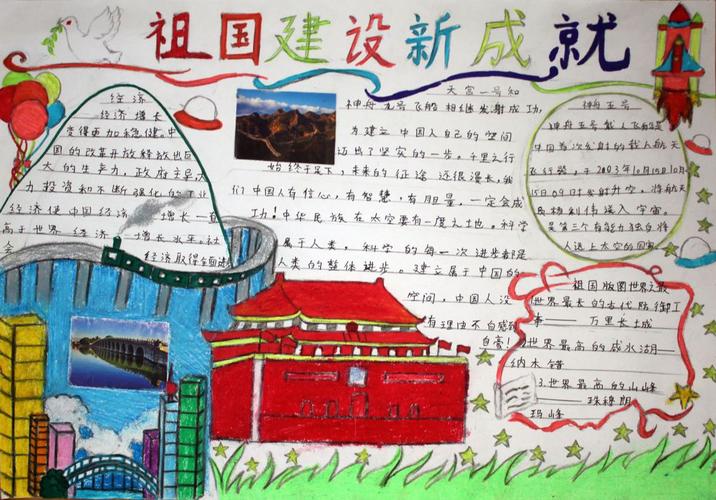 祖国建设新成就
经济
经济增长
变得更加稳健。中
国的改革开放释放出巨
大的生产力，政府主导
力投资和不断强化的工业
经济使中国经济增长一直
高于世界经济增长水平。社
会经济取得全面进
天宫一号和
神舟九号飞船相继发射成功，
为建立中国人自己的空间
迈出了坚实的一步。千里之行
始终于足下，未来的征途还很漫长，我
们中国人有信心，有智慧，有胆量，一定会成
功！中华民族在太空要有一度之土地。科学
属于人类，科学的每一次进步都是
人类的整体进步。建立属于中国的
空间，中国人没
有理由不自感到
自豪！
神舟五号
神舟五号载人飞船是
中国首次发射的载人航天
飞行器，于2003年10月15日10月
15日09时发射升空，将航天
员杨利伟送入宇宙。
是第三个有能力独自将
人送上太空的国家
祖国版图世界之最
世界最长的古代防御工
事——万里长城
世界最高的咸水湖——
纳木错
3.世界最高的山峰
——珠穆朗
玛峰